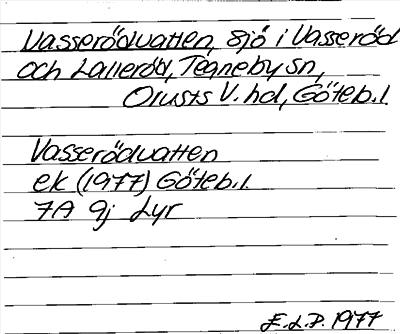 Vasserödvatten, sjö i Vasseröd
och Lalleröd, Tegneby sn,
Orusts V. hd, Göteb. l.
Vasserödvatten
ek (1977) Göteb. l.
7A 9j Lyr
E.L.P. 1977